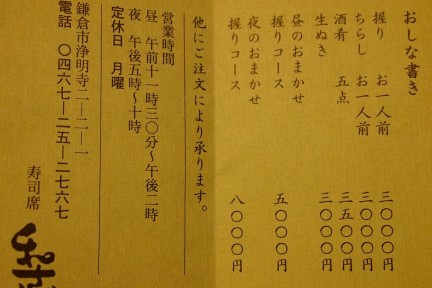 おしな書き
握り　お一人前　三〇〇〇円
ちらし　お一人前　三〇〇〇円
酒肴　五点　三五〇〇円
生ぬき　三〇〇〇円
昼のおまかせ
握りコース　五〇〇〇円
夜のおまかせ
握りコース　八〇〇〇円
他にご注文により承ります。
営業時間
昼　午前十一時三〇分〜午後二時
夜　午後五時〜十時
定休日　月曜
鎌倉市浄明寺二―二―一
電話　〇四六七―二五―二七六七
寿司席